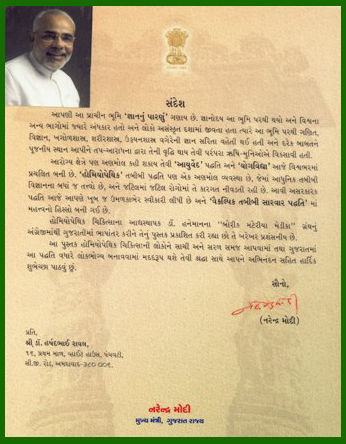 સંદેશ
આપણી આ પ્રાચીન ભૂમિ 'જ્ઞાનનું પારણું' ગણાય છે. જ્ઞાનોદય આ ભૂમિ પરથી થયો અને વિશ્વના
અન્ય ભાગોમાં જ્યારે અંધકાર હતો અને લોકો અસંસ્કૃત દશામાં જીવતા હતા ત્યારે આ ભૂમિ પરથી ગણિત,
વિજ્ઞાન, ખગોળશાસ્ત્ર, શરીરશાસ્ત્ર, ઉડ્ડયનશાસ્ત્ર વગેરેની જ્ઞાન સરિતા વહેતી થઈ હતી અને દરેક બાબતને
પૂજનીય સ્થાન આપીને તપ-આરાધના દ્વારા તેની વૃદ્ધિ થાય તેવી પરંપરા ઋષિ-મુનિઓએ વિકસાવી હતી.
આરોગ્ય ક્ષેત્રે પણ અણમોલ કહી શકાય તેવી 'આયુર્વેદ' પદ્ધતિ અને 'યોગવિદ્યા' આજે વિશ્વભરમાં
પ્રચલિત બની છે. 'હોમિયોપેથિક' તબીબી પદ્ધતિ પણ એક અણમોલ વ્યવસ્થા છે, જેમાં આધુનિક તબીબી
વિજ્ઞાનના બધાં જ તત્ત્વો છે, અને જટિલમાં જટિલ રોગોમાં તે કારગત નીવડતી રહી છે. આવી અસરકારક
પદ્ધતિ આજે આપણે ખૂબ જ ઉમળકાભેર સ્વીકારી લીધી છે અને 'વૈકલ્પિક તબીબી સારવાર પદ્ધતિ' માં
મહત્વનો હિસ્સો બની ગઈ છે.
હોમિયોપેથિક ચિકિત્સાના આદ્યસ્થાપક ડૉ. હનેમાનના "બોરીક મટેરીયા મેડીકા" ગ્રંથનું
અંગ્રેજીમાંથી ગુજરાતીમાં ભાષાંતર કરીને તેનું પુસ્તક પ્રકાશિત કરી રહ્યા છો તે ખરેખર પ્રશંસનીય છે.
આ પુસ્તક હોમિયોપેથિક ચિકિત્સાની લોકોને સાચી અને સરળ સમજ આપવામાં તથા ગુજરાતમાં
આ પદ્ધતિ વધારે લોકભોગ્ય બનાવવામાં મદદરૂપ થશે તેવી શ્રદ્ધા સાથે આપને અભિનંદન સહિત હાર્દિક
શુભેચ્છા પાઠવું છું.
સૌનો,
(નરેન્દ્ર મોદી)
પ્રતિ,
શ્રી ડૉ. હર્ષદભાઈ રાવલ,
૧૬, પ્રથમ માળ, વ્હાઈટ હાઉસ, પંચવટી,
સી.જી. રોડ, અમદાવાદ-૩૮૦ ૦૦૬.
નરેન્દ્ર મોદી
મુખ્ય મંત્રી, ગુજરાત રાજ્ય